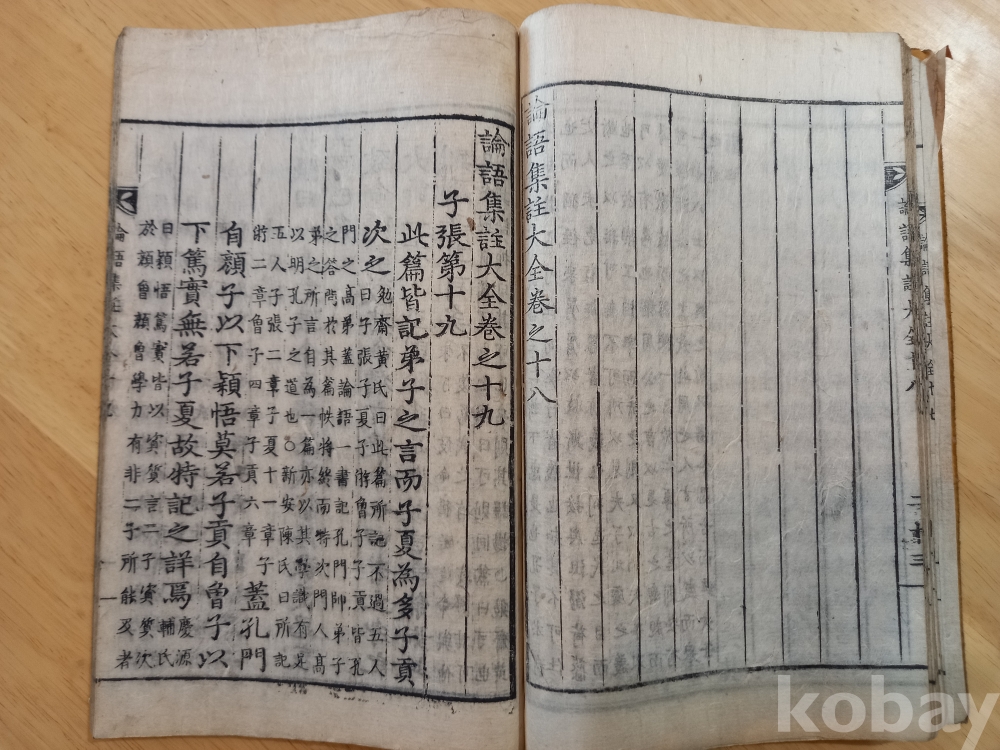 論語集註大全卷之十八
論語集註大全卷之十九
子張第十九
此篇皆記弟子之言而子夏為多子貢
次之
勉齋黃氏曰此篇所記不過五人
曰子張子夏子游曾子子貢皆孔
門之高弟蓋論語一書記孔門師弟子
之答問於其篇帙將終而特次門人高
弟之所言自為一篇亦以其學識有足
以明孔子之道也○新安陳氏曰所記
五人子張二章子夏十一章子
游二章曾子四章子貢六章
蓋孔門
自顏子以下穎悟莫若子貢自曾子以
下篤實無若子夏故特記之詳焉
慶源
輔氏
曰穎悟篤實皆以資質言二子資質次
於顏曾顏曾學力有非二子所能及者
kobay